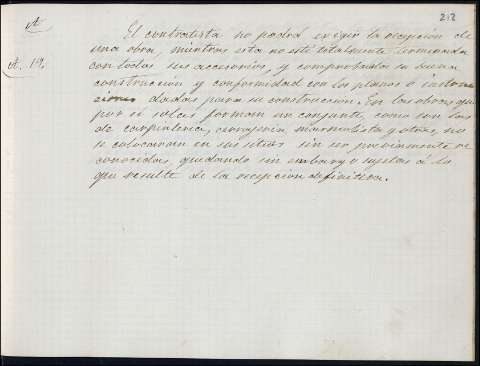 22
El contratista no podrá exigir la recepción de
una obra, mientras esta no esté totalmente terminada
A. 19,
con todos sus accesorios, y comprobada su buena
construcción y conformidad con los planos ó instruc
ciones dadas para su construccion. En las obras que
por si solas forman un conjunto, como son las
de carpinteria, cerrajeria, marmolista y otras, no
se colocaran en sus sitios sin ser previamente re
conocidas, quedando sin embargo sujetas á lo
que resulte de la recepcion definitiva.